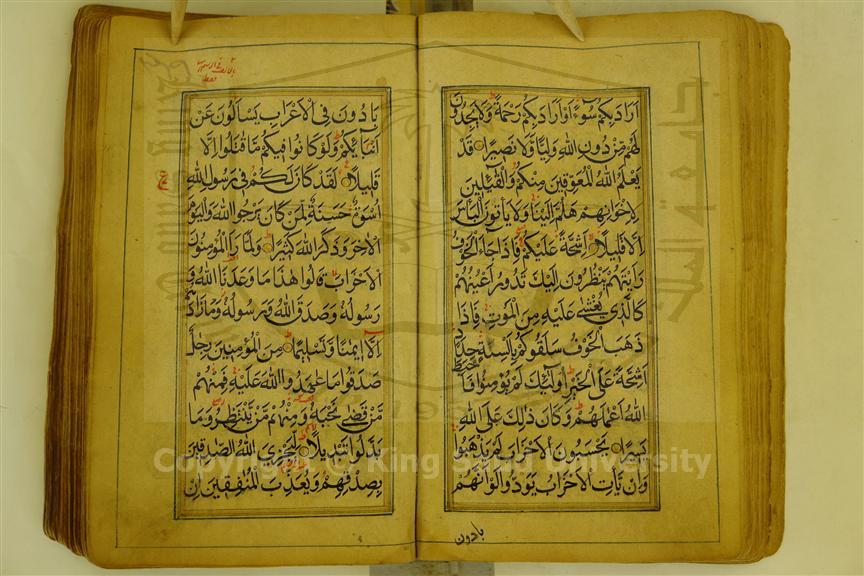 اَرَادَ بِكُمْ سُوْۤءًا اَوْ اَرَادَ بِكُمْ رَحْمَةً وَلَا يَجِدُوْنَ
لَهُمْ مِنْ دُوْنِ اللّٰهِ وَلِيًّا وَّلَا نَصِيْرًا قَدْ
يَعْلَمُ اللّٰهُ الْمُعَوِّقِيْنَ مِنْكُمْ وَالْقَآئِلِيْنَ
لِاِخْوَانِهِمْ هَلُمَّ اِلَيْنَا وَلَا يَأْتُوْنَ الْبَأْسَ
اِلَّا قَلِيْلًا اَشِحَّةً عَلَيْكُمْ فَاِذَا جَآءَ الْخَوْفُ
رَاَيْتَهُمْ يَنْظُرُوْنَ اِلَيْكَ تَدُوْرُ اَعْيُنُهُمْ
كَالَّذِيْ يُغْشٰى عَلَيْهِ مِنَ الْمَوْتِ فَاِذَا
ذَهَبَ الْخَوْفُ سَلَقُوْكُمْ بِاَلْسِنَةٍ حِدَادٍ
اَشِحَّةً عَلَى الْخَيْرِ اُولٰٓئِكَ لَمْ يُؤْمِنُوْا فَاَحْبَطَ
اللّٰهُ اَعْمَالَهُمْ وَكَانَ ذٰلِكَ عَلَى اللّٰهِ
يَسِيْرًا يَحْسَبُوْنَ الْاَحْزَابَ لَمْ يَذْهَبُوْا
وَاِنْ يَّأْتِ الْاَحْزَابُ يَوَدُّوْا لَوْ اَنَّهُمْ
بادون
بَادُوْنَ فِى الْاَعْرَابِ يَسْاَلُوْنَ عَنْ
اَنْۢبَآئِكُمْ وَلَوْ كَانُوْا فِيْكُمْ مَّا قٰتَلُوْا اِلَّا
قَلِيْلًا لَقَدْ كَانَ لَكُمْ فِيْ رَسُوْلِ اللّٰهِ
اُسْوَةٌ حَسَنَةٌ لِّمَنْ كَانَ يَرْجُوا اللّٰهَ وَالْيَوْمَ
الْاٰخِرَ وَذَكَرَ اللّٰهَ كَثِيْرًا وَلَمَّا رَاَ الْمُؤْمِنُوْنَ
الْاَحْزَابَ قَالُوْا هٰذَا مَا وَعَدَنَا اللّٰهُ وَ
رَسُوْلُهٗ وَصَدَقَ اللّٰهُ وَرَسُوْلُهٗ وَمَا زَادَهُمْ
اِلَّا اِيْمَانًا وَّتَسْلِيْمًا مِنَ الْمُؤْمِنِيْنَ رِجَالٌ
صَدَقُوْا مَا عَاهَدُوا اللّٰهَ عَلَيْهِ فَمِنْهُمْ
مَّنْ قَضٰى نَحْبَهٗ وَمِنْهُمْ مَّنْ يَّنْتَظِرُ وَمَا
بَدَّلُوْا تَبْدِيْلًا لِيَجْزِيَ اللّٰهُ الصّٰدِقِيْنَ
بِصِدْقِهِمْ وَيُعَذِّبَ الْمُنٰفِقِيْنَ اِنْ
Copyright © King Saud University